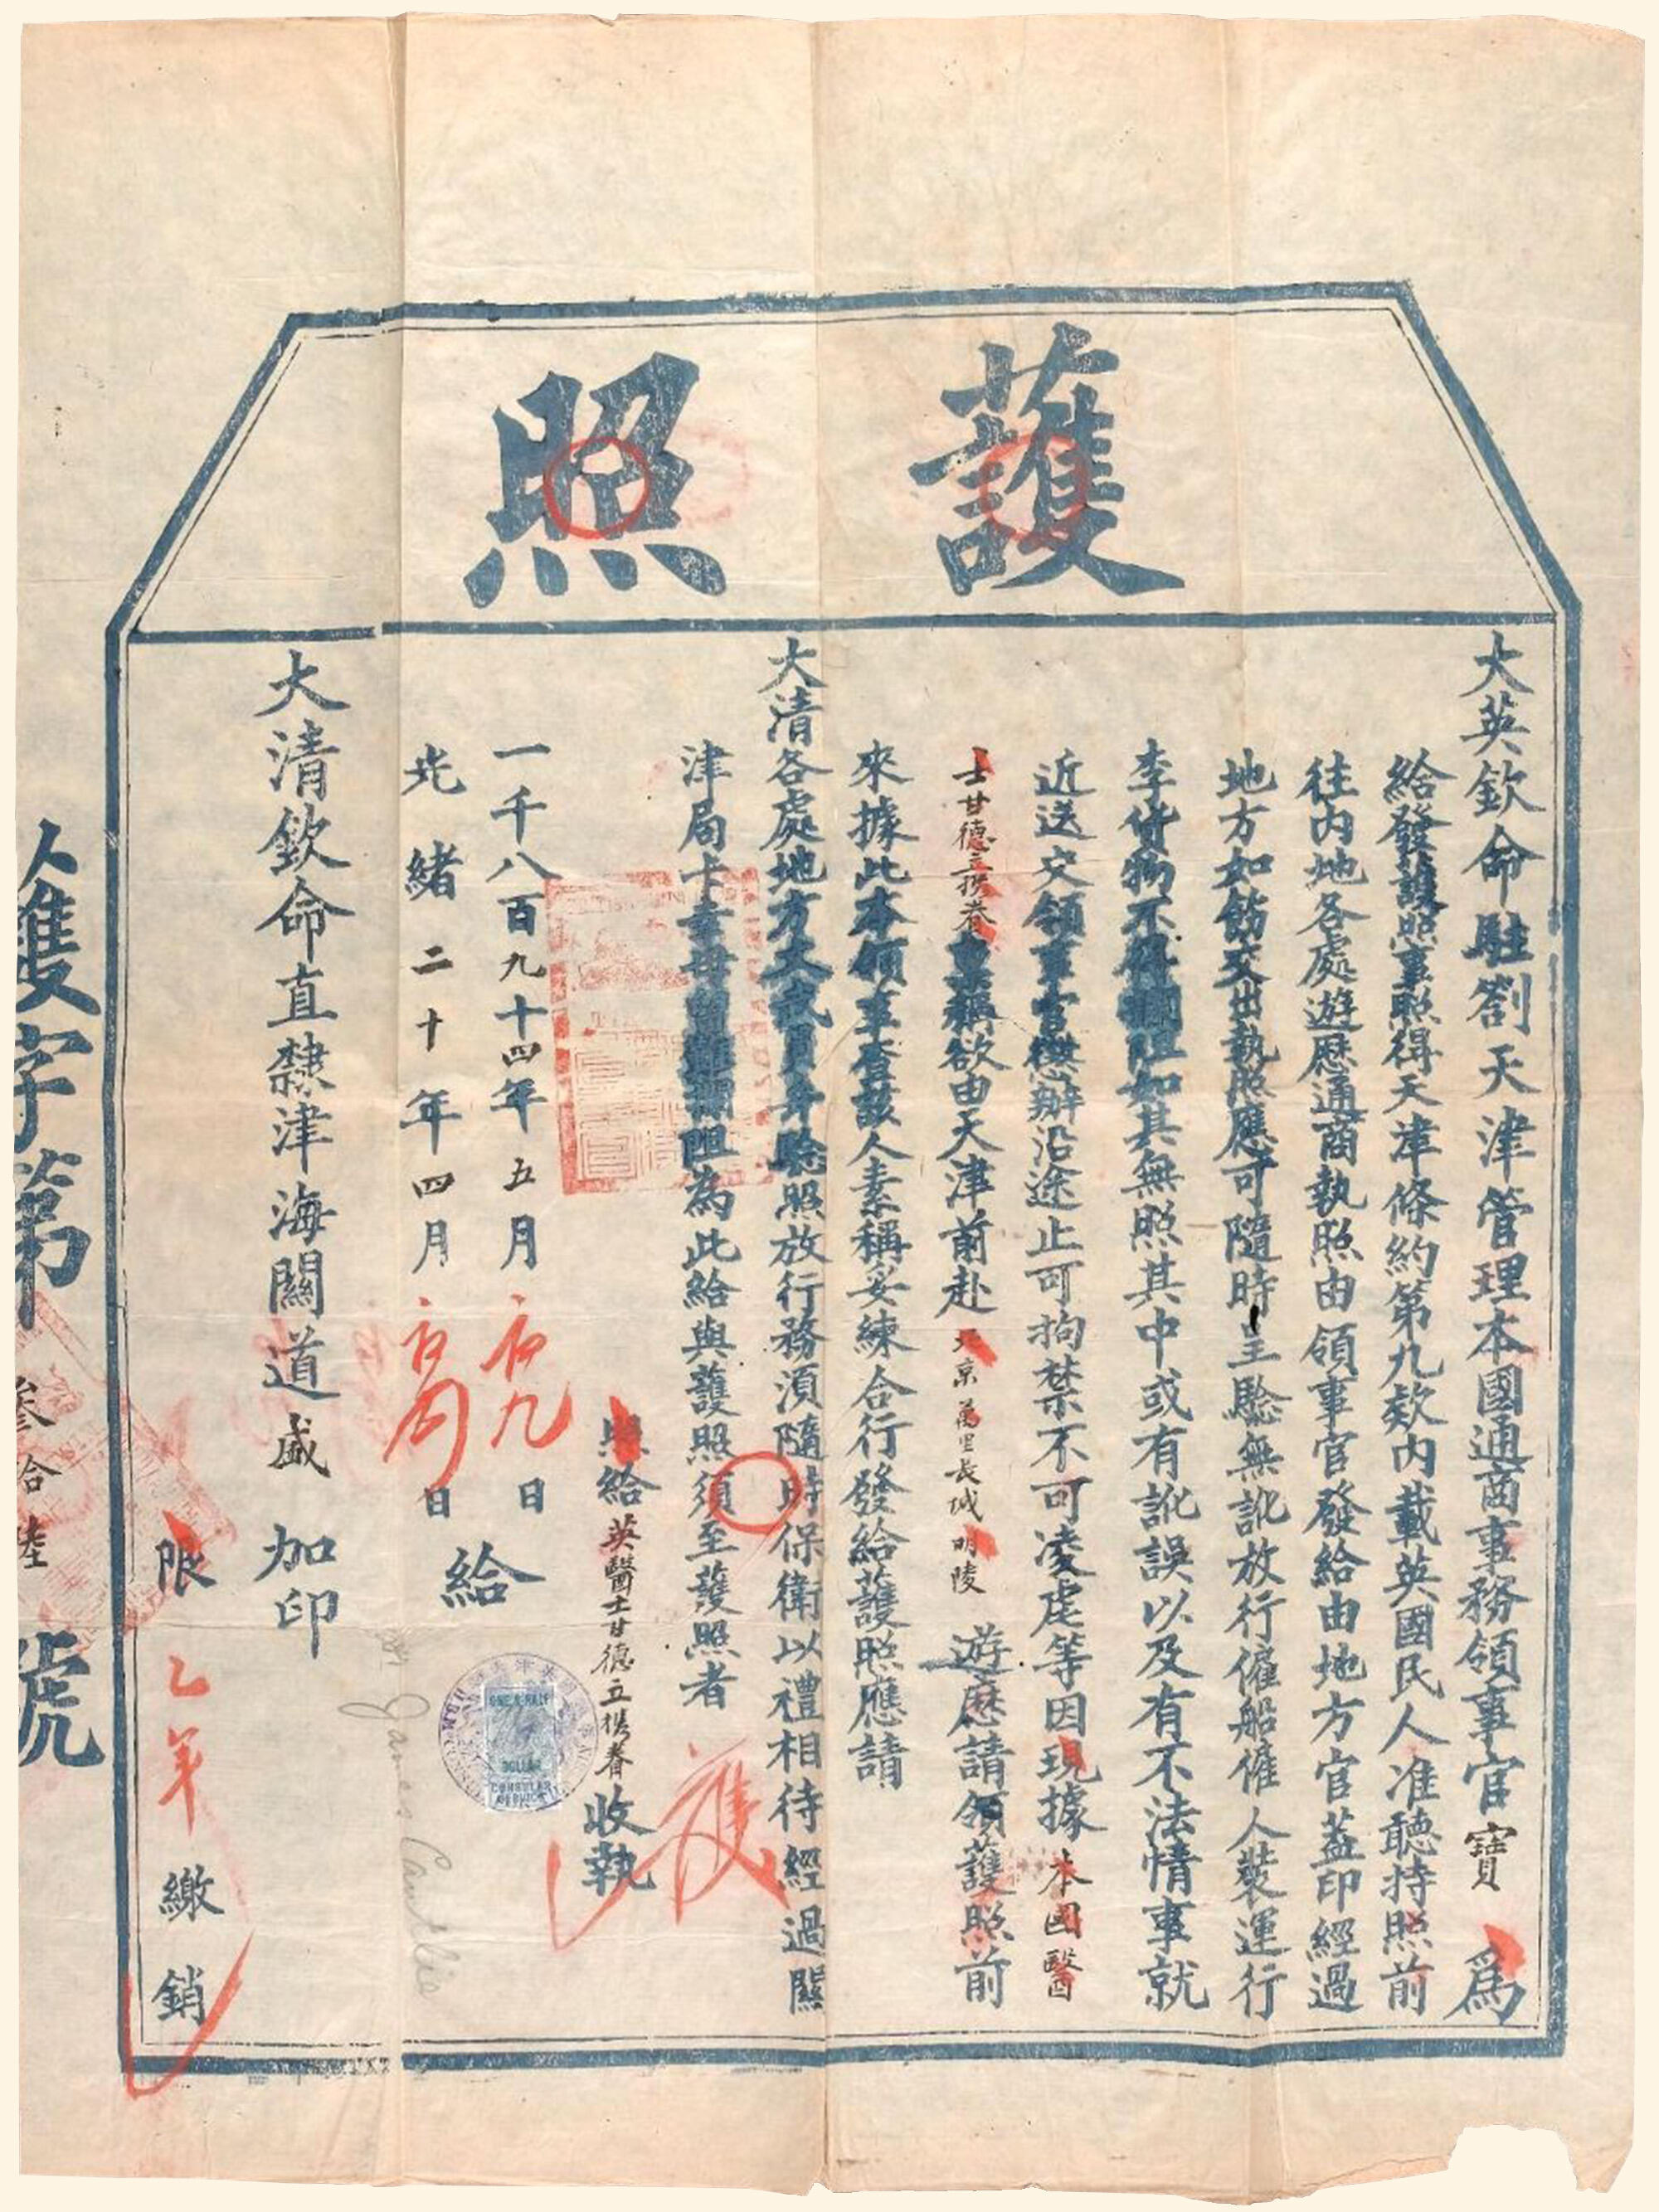 護照
大英欽命駐劄天津管理本國通商事務領事官寶 爲
給發護照事照得天津條約第九款內載英國民人准聽持照前
往內地各處遊歷通商執照由領事官發給由地方官蓋印經過
地方如飭交出執照應可隨時呈驗無訛放行僱船僱人裝運行
李貨物不得攔阻如其無照其中或有訛誤以及有不法情事就
近送交領事官懲辦沿途止可拘禁不可凌虐等因現據本國醫
士甘德立携眷稟稱欲由天津前赴北京萬里長城明陵遊歷請領護照前
來據此本領事查該人素稱妥練合行發給護照應請
大清各處地方文武員弁驗照放行務須隨時保衛以禮相待經過關
津局卡幸毋留難攔阻為此給與護照須至護照者
照給英醫士甘德立携眷收執
護
一千八百九十四年五月 九日
光緒二十年四月 日
給
ONE & HALF
DOLLAR
CONSULAR
SERVICE
James Cantlie
大清欽命直隸津海關道盛 加印
限 乙年 繳銷
雙字第叁拾陸號